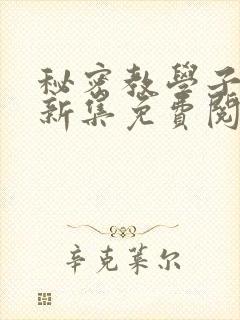 秘密教學子
新集免費閱
辛克萊尔